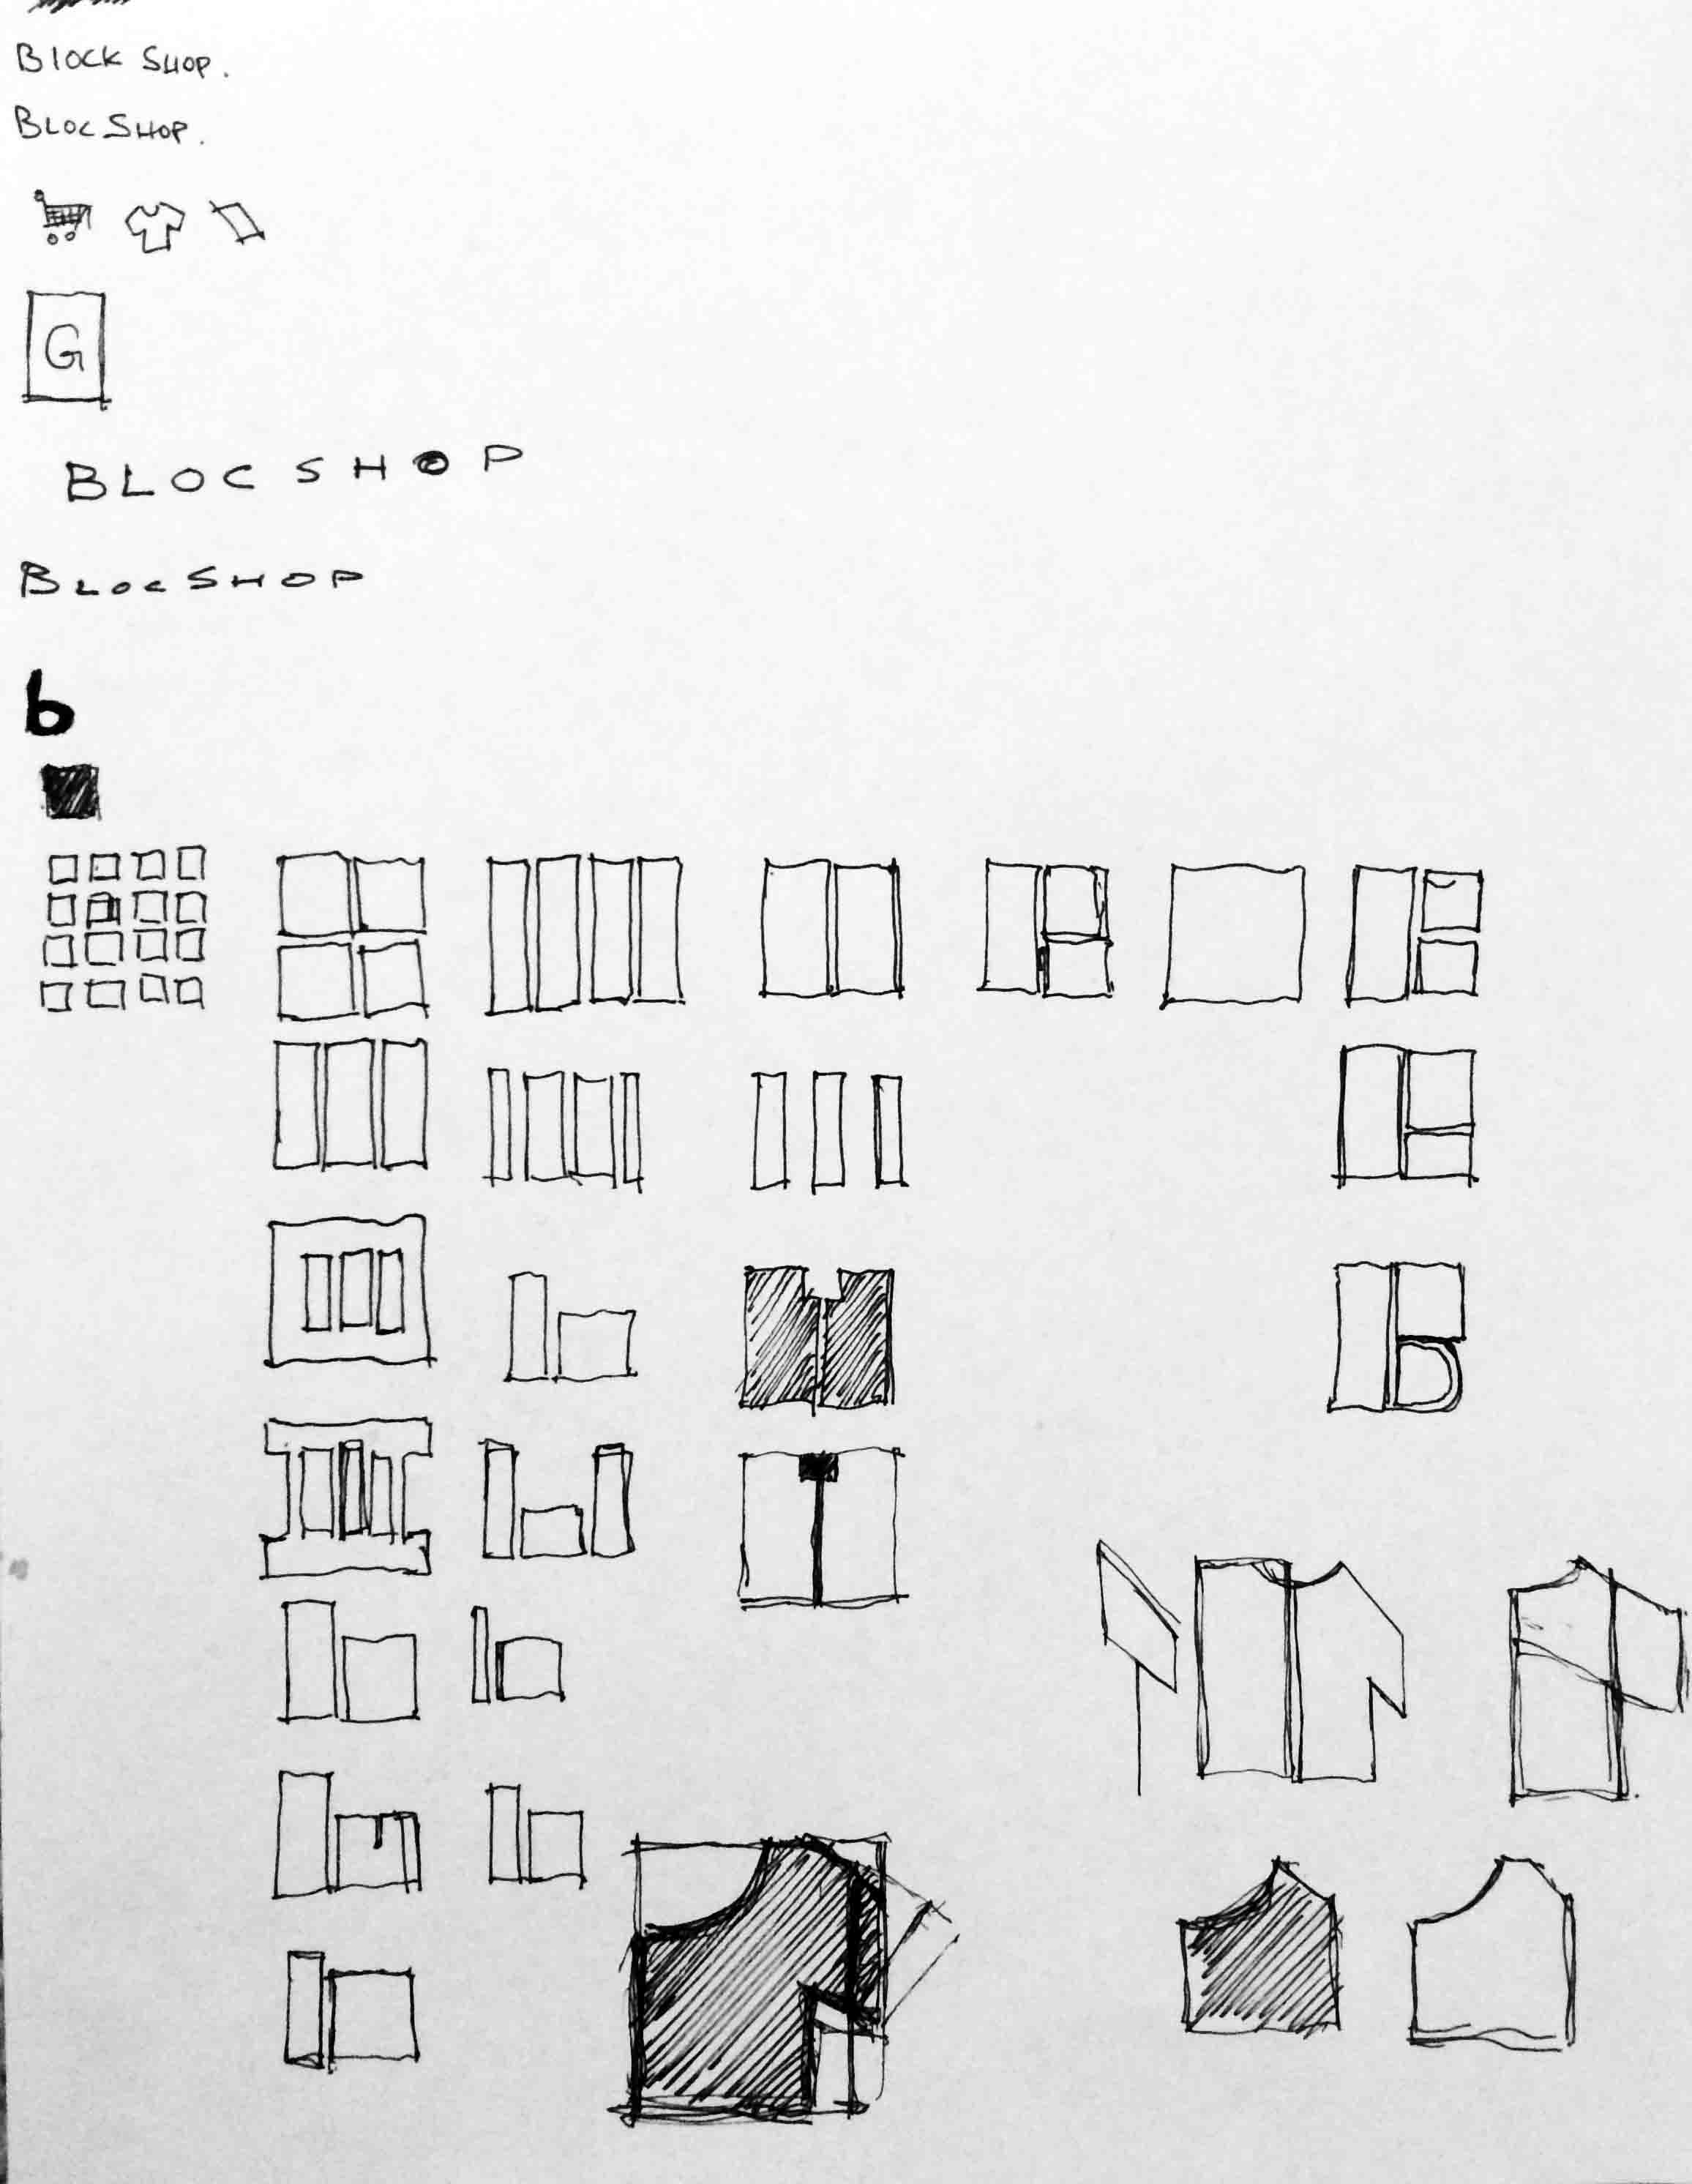 BLOCK SHOP.
BLOC SHOP.
G
BLOC SHOP
BLOCSHOP
b